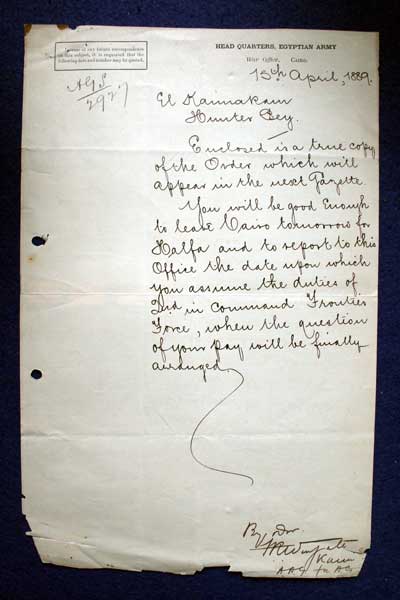 In case of any future correspondence
on this subject, it is requested that the
following date and number may be quoted.
HEAD QUARTERS, EGYPTIAN ARMY
War Office, Cairo.
15th April, 1889.
2927
El Kaimakam
Hunter Bey.
Enclosed is a true copy
of the Order which will
appear in the next Gazette.
You will be good Enough
to leave Cairo tomorrow for
Halfa and to report to this
Office the date upon which
you assume the duties of
2nd in Command Frontier
Force, when the question
of your pay will be finally
arranged.
By order.
Wingate
Kaim
AAG for AG